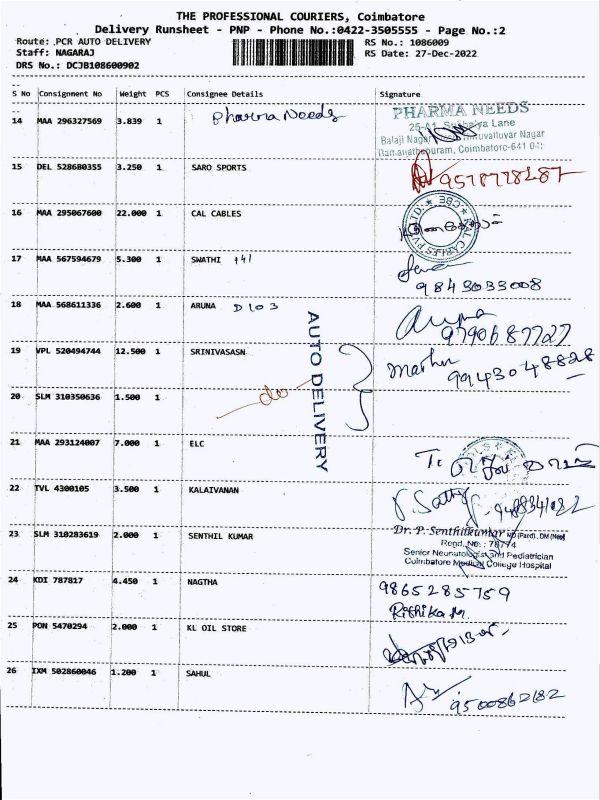 THE PROFESSIONAL COURIERS, Coimbatore
Delivery Runsheet - PNP - Phone No.:0422-3505555 - Page No.:2
Route: PCR AUTO DELIVERY RS No.: 1086009
Staff: NAGARAJ RS Date: 27-Dec-2022
DRS No.: DCJB108600902
S No Consignment No Weight PCS Consignee Details Signature
14 MAA 296327569 3.839 1 Pharma Needs PHARMA NEEDS
Lane
Balaji Nagar Thiruvalluvar Nagar
Ramanathapuram, Coimbatore-641
15 DEL 528680355 3.250 1 SARO SPORTS
16 MAA 295067600 22.000 1 CAL CABLES
17 MAA 567594679 5.300 1 SWATHI
9843033008
18 MAA 568611336 2.600 1 ARUNA D103 Aruna
9790687727
19 VPL 520494744 12.500 1 SRINIVASASN
9943048828
AUTO DELIVERY
20 SLM 310350636 1.500 1 -do-
21 MAA 293124007 7.000 1 ELC
22 TVL 4300105 3.500 1 KALAIVANAN
23 SLM 310283619 2.000 1 SENTHIL KUMAR Dr. P. Senthilkumar
Regd. No.: 78774
Senior Neonatologist and Pediatrician
Coimbatore Medical College Hospital
24 KDI 787817 4.450 1 NAGTHA 9865285759
Rithika M.
25 PON 5470294 2.000 1 KL OIL STORE
26 IXM 502860046 1.200 1 SAHUL
9500862182